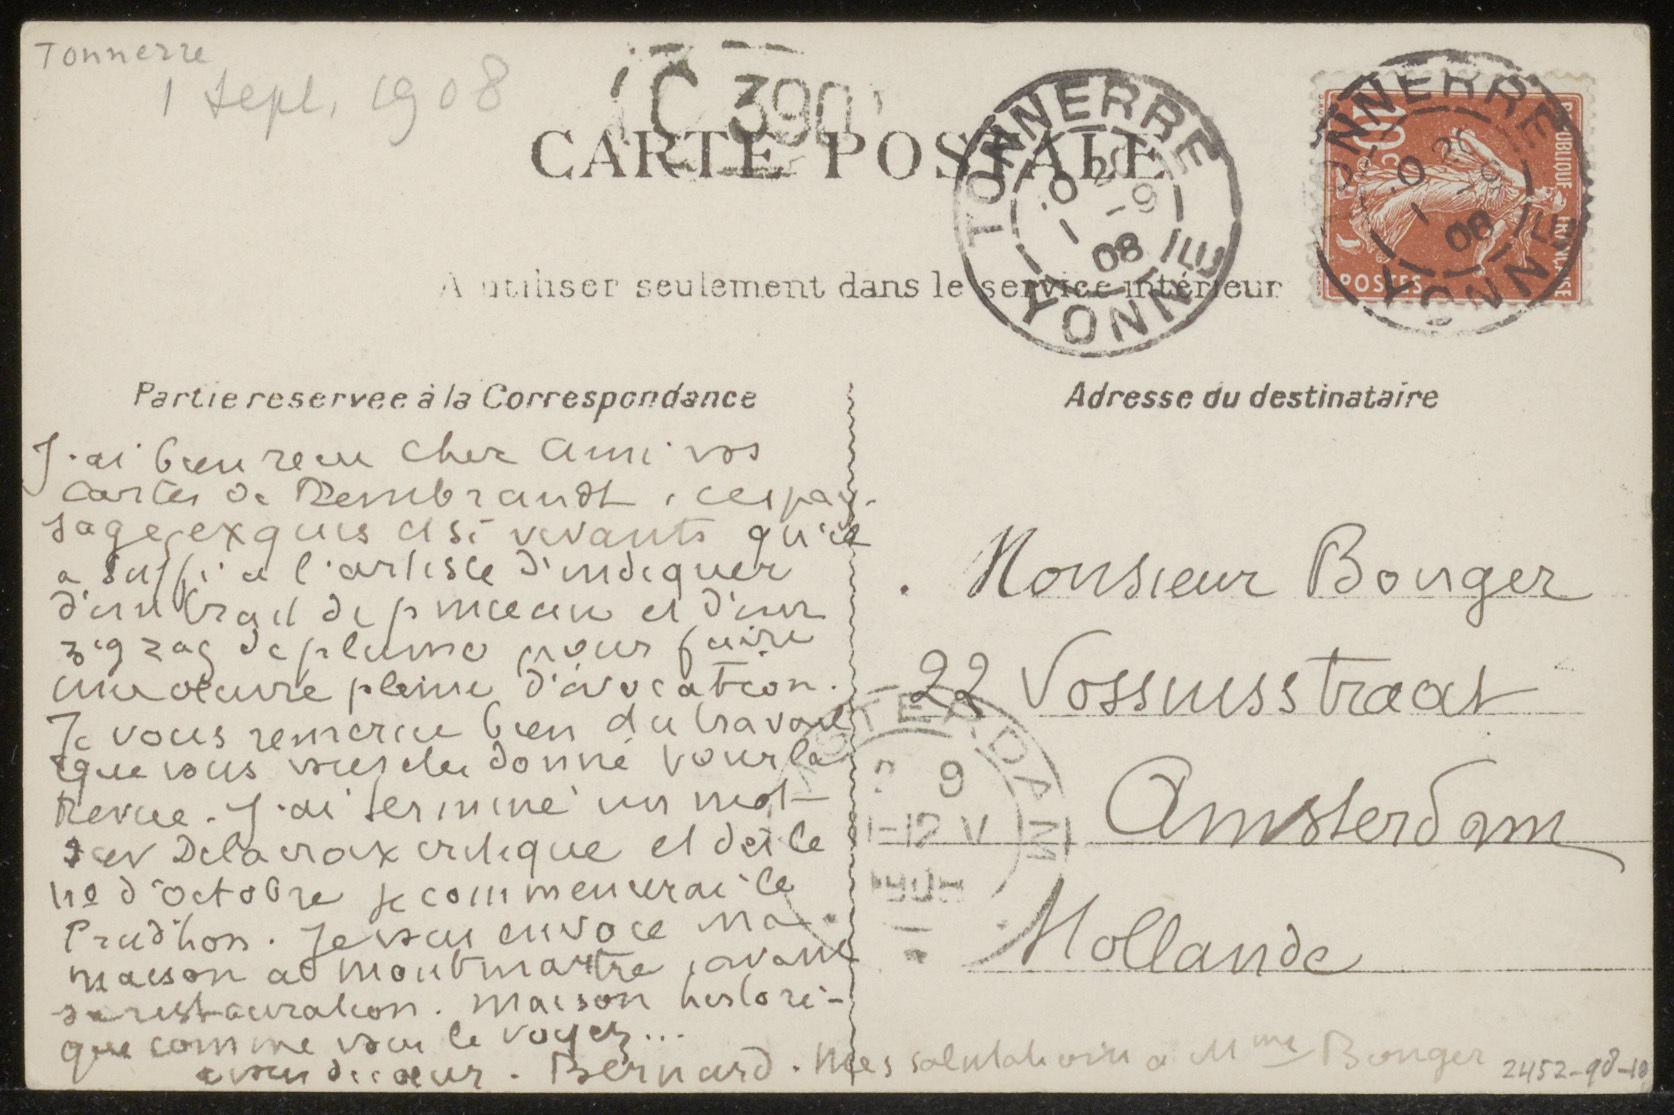 Tonnerre
1 Sept. 1908
C 390
CARTE POSTALE
TONNERRE
YONNE
20
1 -9
08
TONNERRE
YONNE
20
1 -9
08
10
POSTES
A utiliser seulement dans le service intérieur
Partie reservee à la Correspondance
Adresse du destinataire
J'ai bien recu cher Ami vos
cartes de Rembrandt, ces pay-
sages exquis et si vivants qu'il
a suffi a l'artiste d'indiquer
d'un trait de pinceau et d'un
zig zag de plume pour faire
une oeuvre pleine d'évocation.
Je vous remercie bien du travail
que vous vous êtes donné pour la
Revue. J'ai terminé un mot
sur Delacroix critique et dès le
no d'octobre je commencerai le
Prudhon. Je vous envoie ma
maison a Montmartre, avant
sa restauration. Maison histori-
que comme vous le voyez...
a vous de coeur. Bernard. Mes salutations a Mme Bonger
Monsieur Bonger
22 Vossiusstraat
Amsterdam
Hollande
AMSTERDAM
9
-12 V
2452-98-10